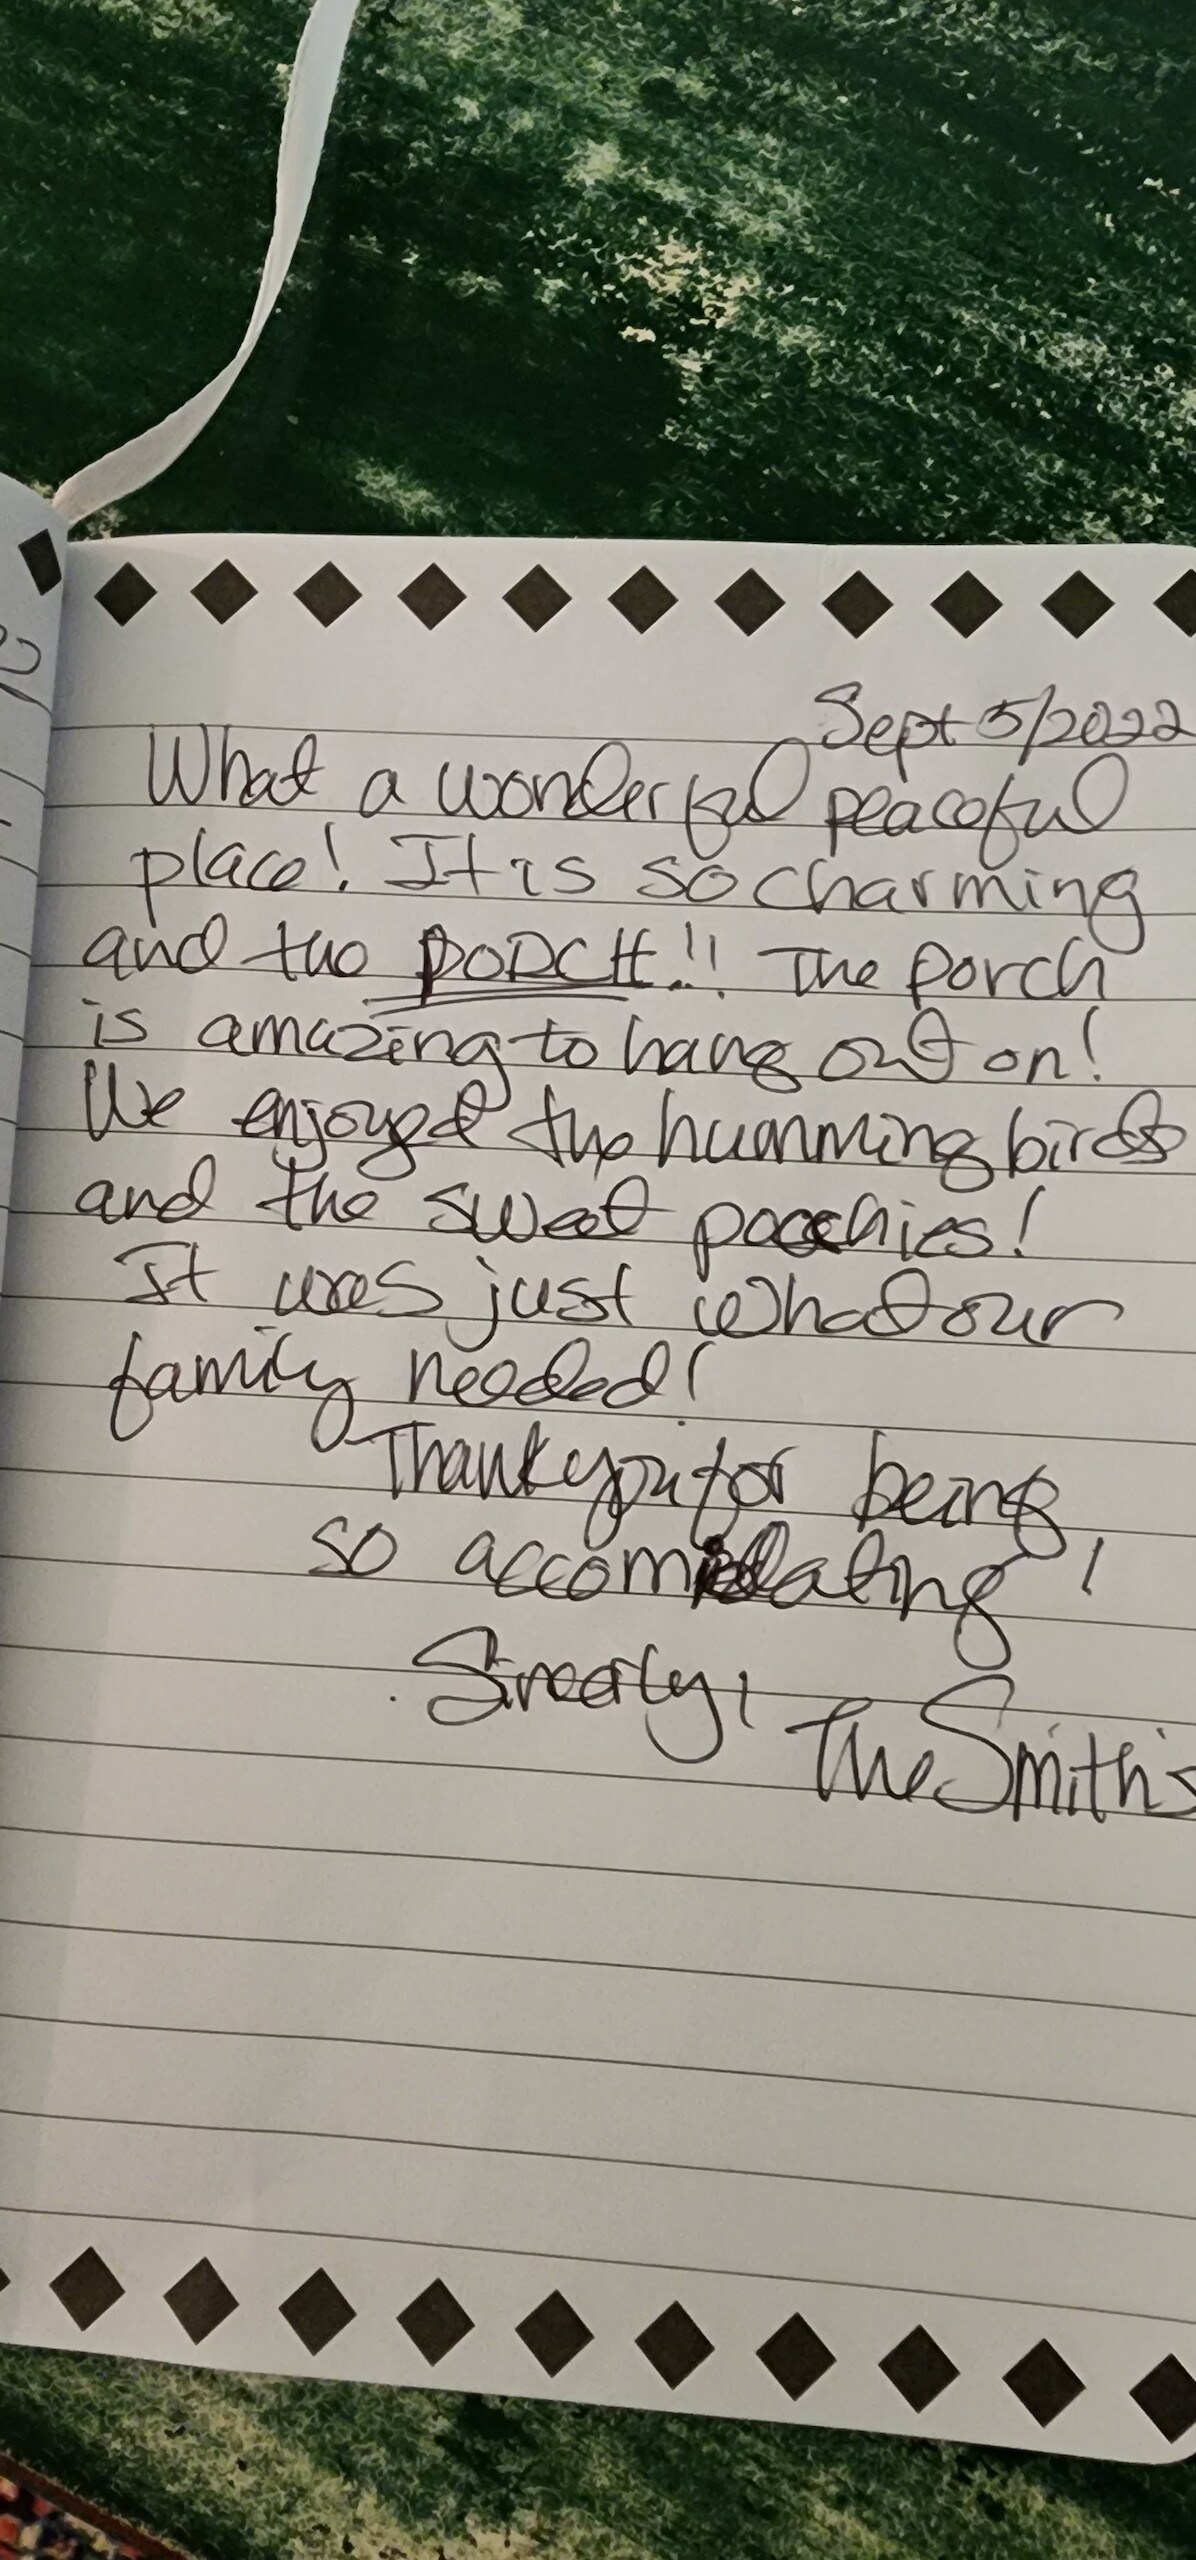 Sept 5/2022
What a wonderful peaceful
place! It is so charming
and the PORCH!! The porch
is amazing to hang out on!
We enjoyed the humming birds
and the sweet poochies!
It was just what our
family needed!
Thank you for being
so accomidating!
Sincerly,
The Smith's